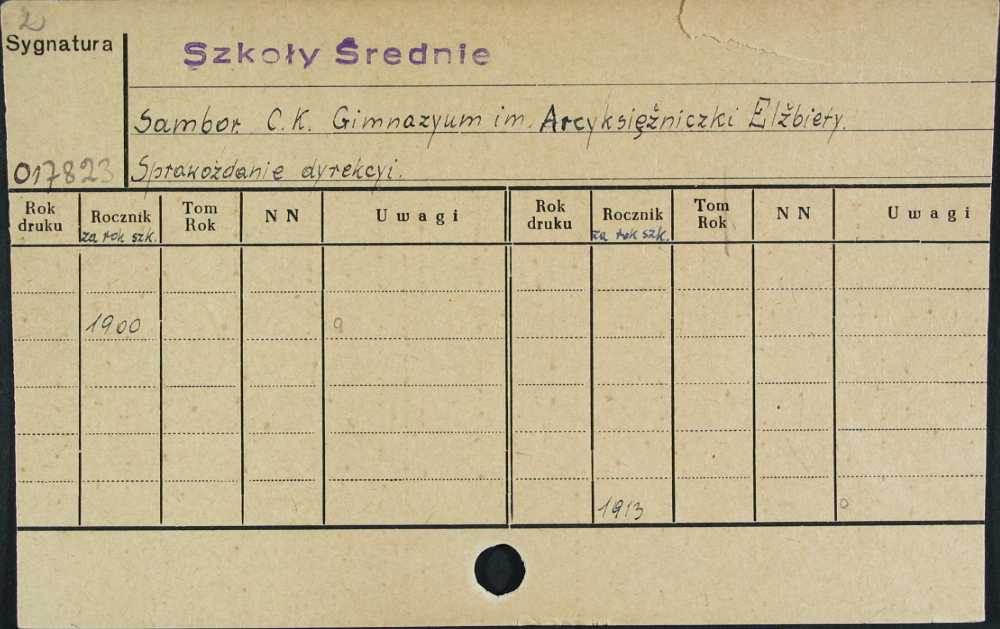 2
Sygnatura
Szkoły Średnie
Sambor. C.K. Gimnazyum im. Arcyksiężniczki Elżbiety.
017823
Sprawozdanie dyrekcyi.
Rok druku Rocznik za rok szk. Tom Rok NN Uwagi Rok druku Rocznik za rok szk. Tom Rok NN Uwagi
1900 9
1913 0